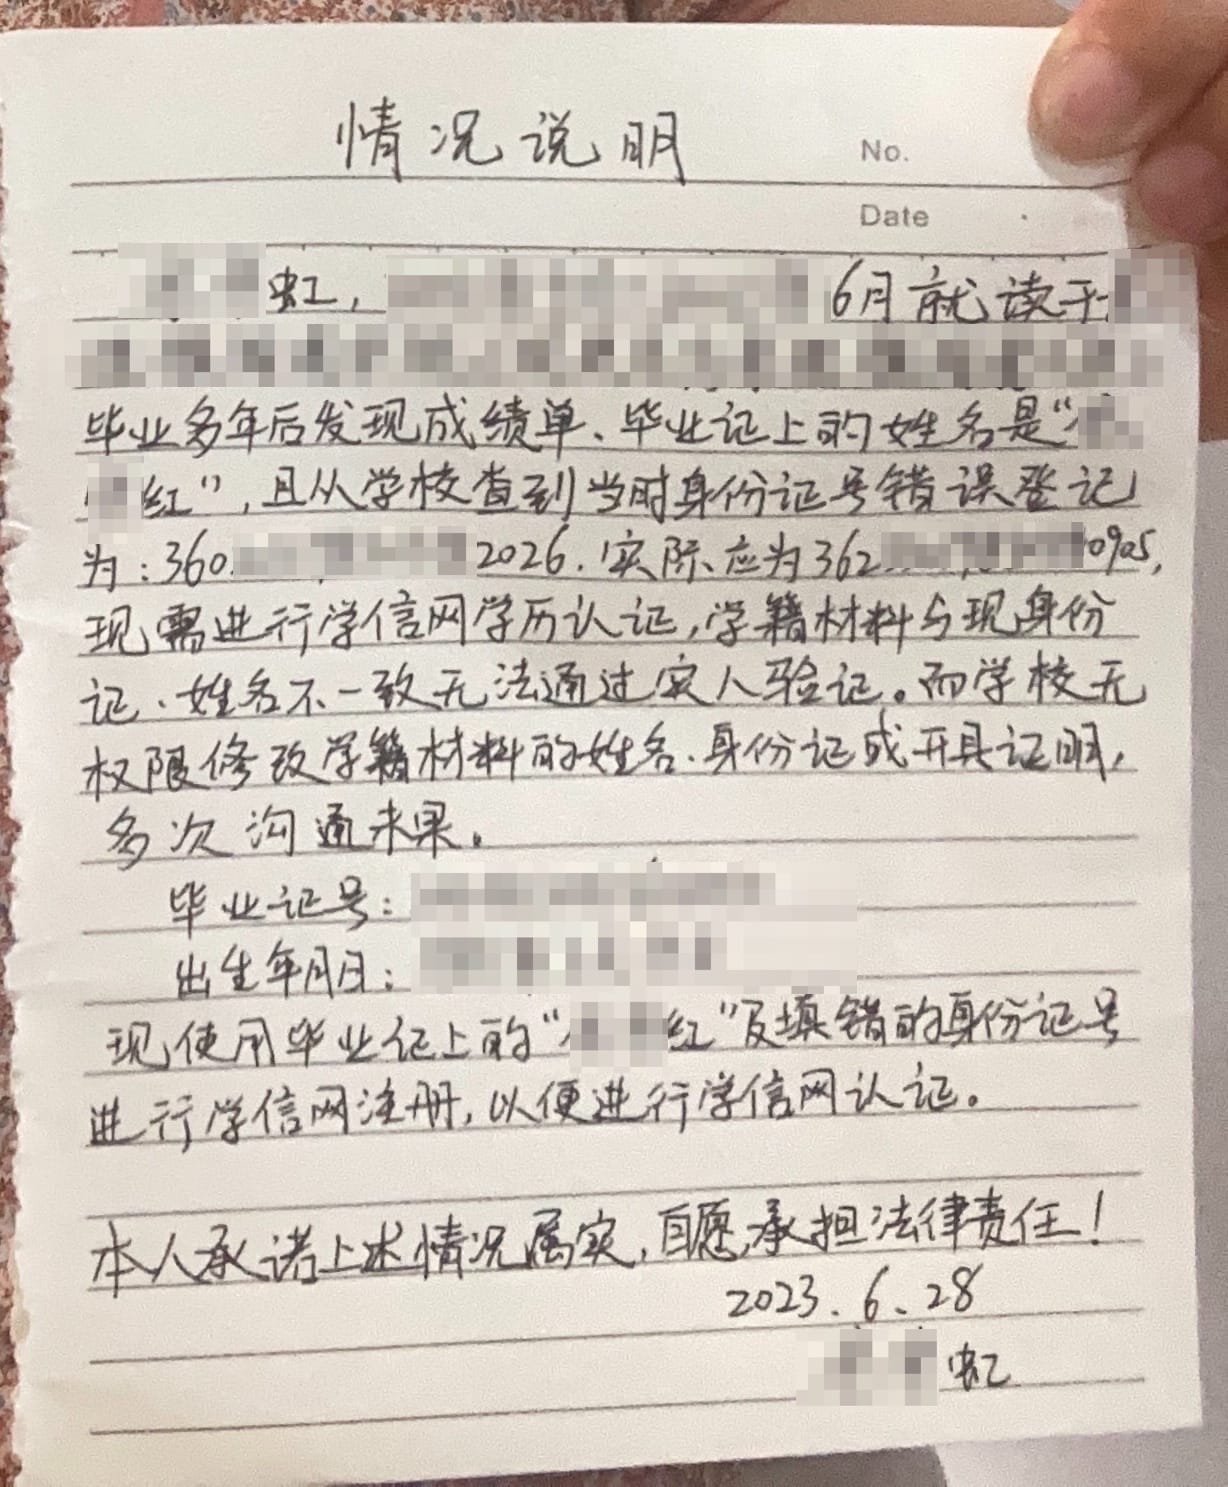 情况说明
No.
Date
虹，6月就读于
毕业多年后发现成绩单、毕业记上的姓名是“
红”，且从学校查到当时身份证号错误登记
为：360 2026.实际应为362 0905，
现需进行学信网学历认证，学籍材料与现身份
证、姓名不一致无法通过实人验证。而学校无
权限修改学籍材料的姓名、身份证或开具证明，
多次沟通未果。
毕业证号：
出生年月日：
现使用毕业证上的“ 红”及填错的身份证号
进行学信网注册，以便进行学信网认证。
本人承诺上述情况属实，自愿承担法律责任！
2023.6.28
虹